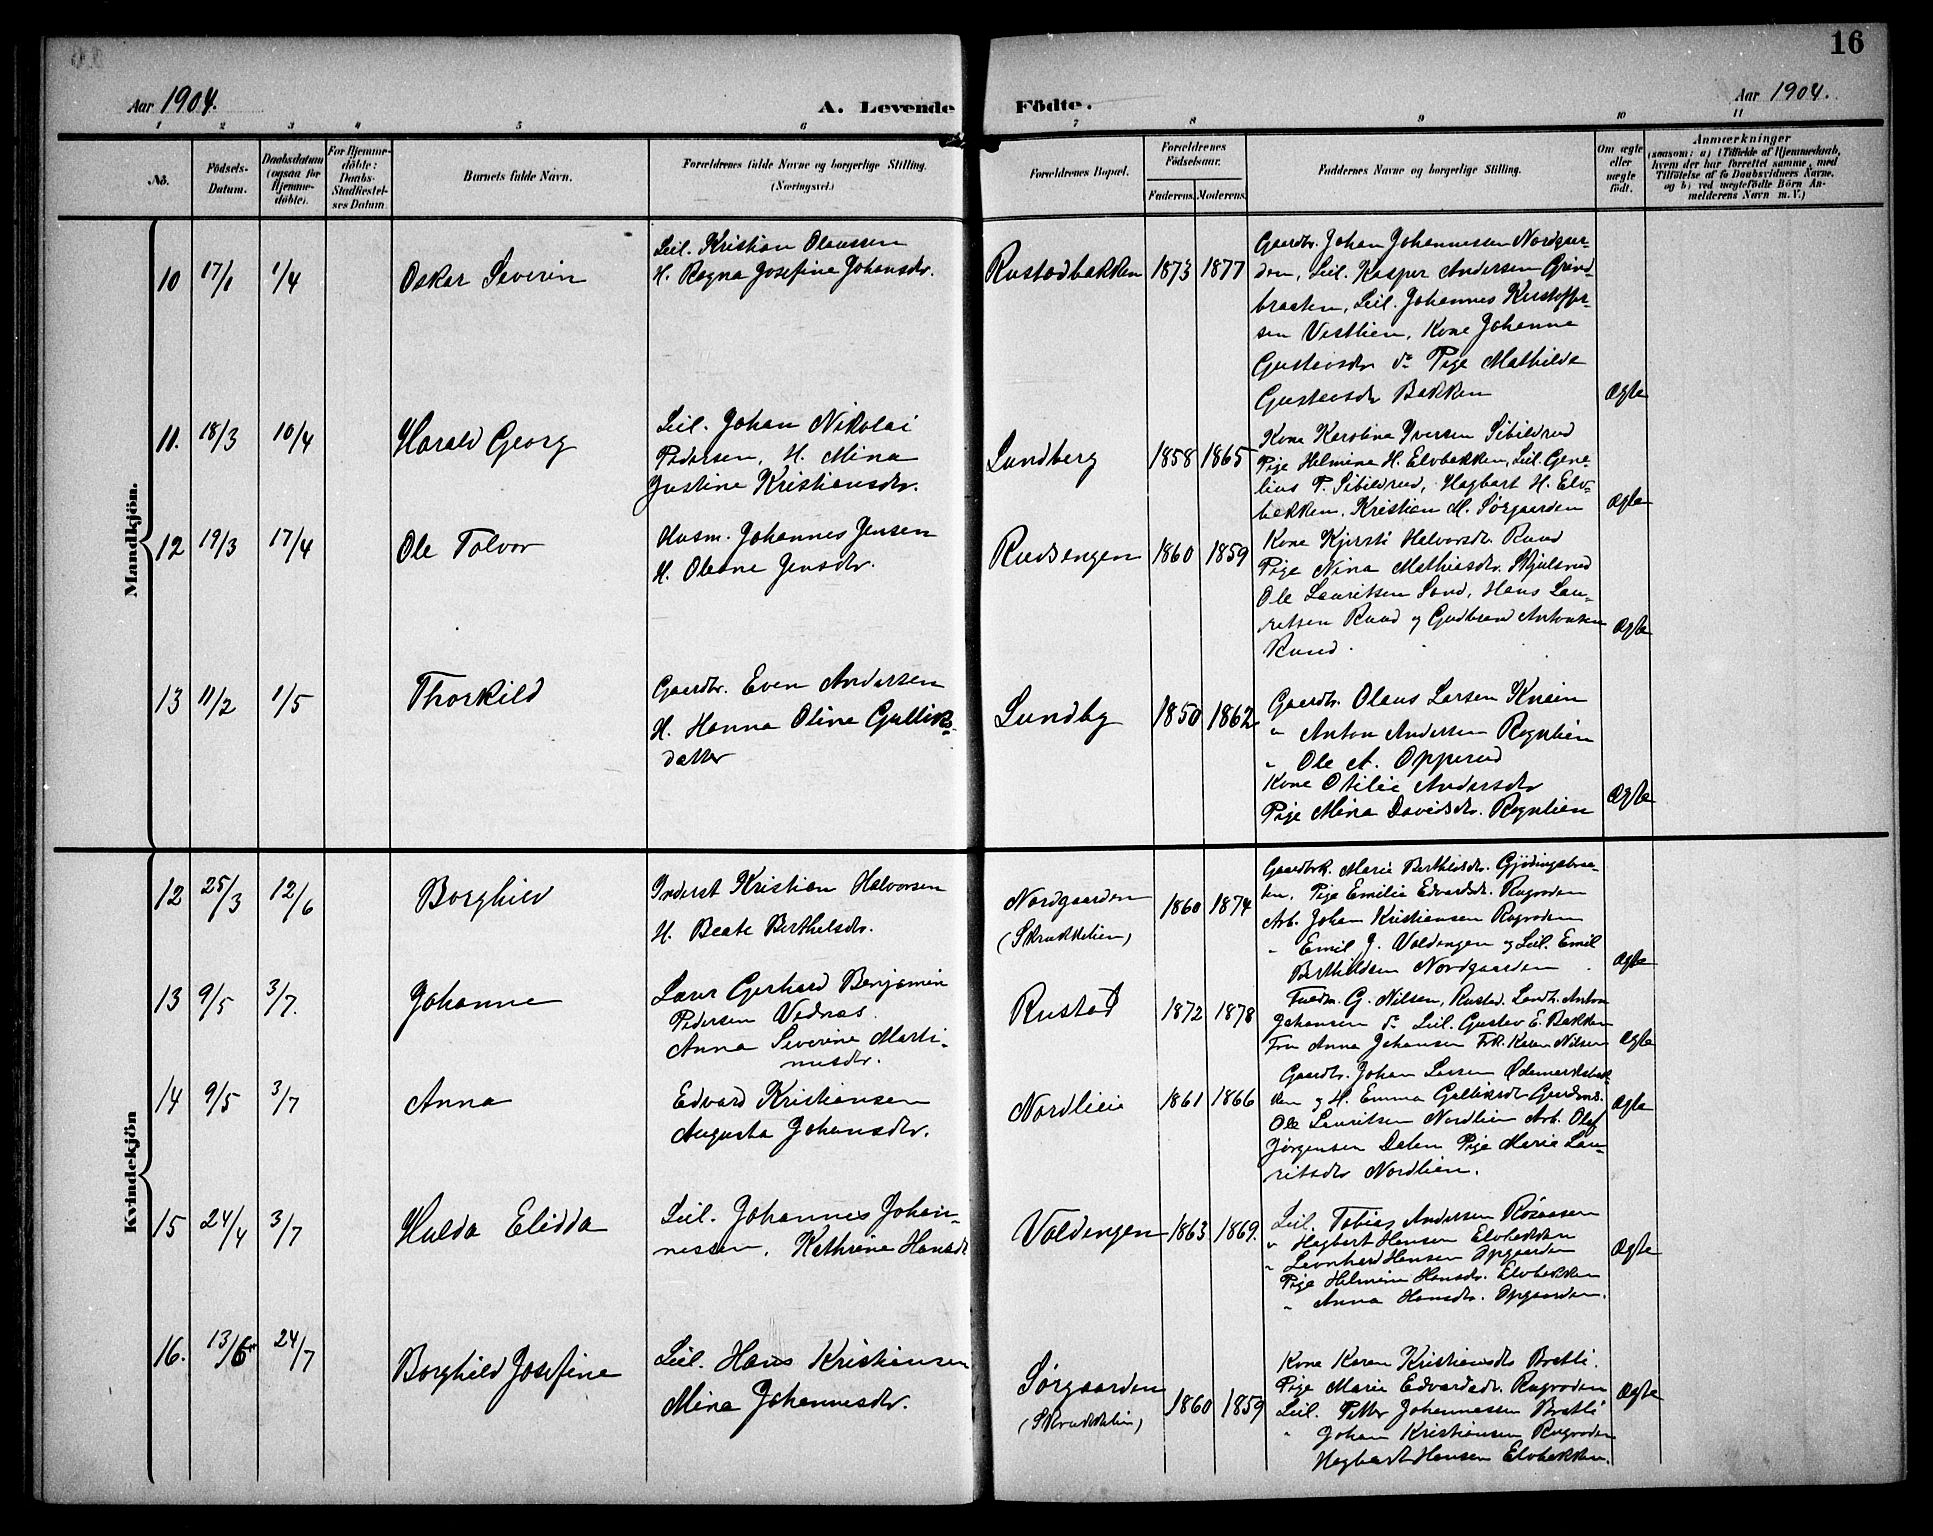 16
Aar 1904.
A. Levende Födte.
Aar 1904.
1 2 3 4 5 6 7 8 9 10 11
No.
Födsels-
Datum.
Daabsdatum
(ogsaa for
Hjemme-
døbte).
For Hjemme-
døbte:
Daabs-
Stadfæstel-
ses Datum.
Barnets fulde Navn.
Forældrenes fulde Navne og borgerlige Stilling.
(Næringsvei.)
Forældrenes Bopæl.
Forældrenes
Födselsaar.
Faderens. Moderens.
Faddernes Navne og borgerlige Stilling.
Om ægte
eller
uægte
født.
Anmærkninger
(saasom: a) i Tilfælde af Hjemmedaab,
hvem der har forrettet samme, med
Tilføielse af to Daabsvidners Navne,
og b) ved uægtefödte Börn An-
melderens Navn m. V.)
Mandkjön.
10 17/1 1/4 Oskar Severin
Leil. Kristian Olaussen
H. Ragna Josefine Johansdr.
Rustadbakken 1873 1877
Gaardbr. Johan Johannessen Nordgaar-
den, Leil. Kasper Andersen Grind-
braaten, Leil. Johannes Kristoffer-
sen Vestlien, Kone Johanne
Gustavsdr do Pige Mathilde
Gustavsdr Bakken
Ægte
11. 18/3 10/4 Harald Georg
Leil. Johan Nikolai
Pedersen, H. Mina
Justine Kristiansdr.
Lundberg 1858 1865
Kone Karolina Iversen Sibildrud
Pige Helmina H. Elvbakken, Leil. Gene-
lius P. Sibildrud, Hagbart H. Elv-
bakken, Kristian M. Sørgaarden
Ægte
12 19/3 17/4 Ole Tolvor
Husm. Johannes Jensen
H. Oleane Jensdr.
Rudsengen 1860 1859
Kone Kjersti Halvorsdr. Ruud
Pige Nina Mathiasdr. Skjulsrud
Ole Lauritsen Sand, Hans Lau-
ritsen Ruud og Gudbrand Antonsen
Ruud.
Ægte
13 11/2 1/5 Thorkild
Gaardbr. Even Andersen
H. Hanna Oline Gulliks-
datter
Lundby 1850 1862
Gaardbr. Olaus Larsen Knain
" Anton Andersen Rognlien
" Ole A. Opperud
Kone Otilie Andersdr
Pige Mina Davidsdr. Rognlien
Ægte
Kvindekjön
12 25/3 12/6 Borghild
Inderst Kristian Halvorsen
H. Beate Berthelsdr.
Nordgaarden
(Skruklien)
1860 1874
Gaardbrk. Marie Berthilsdr. Gjødingsbraa-
ten, Pige Emilie Edvardsdr. Rugroden
Arb. Johan Kristiansen Rugroden
" Emil J. Voldengen og Leil. Emil
Berthildsen Nordgaarden
Ægte
13 9/5 3/7. Johanne
Lærer Gerhard Benjamin
Pedersen Vednæs.
Anna Severine Marti-
nusdr.
Rustad 1872 1878
Fuldm. G. Nilsen, Rustad. Landh. Anton
Johansen do Leil. Gustav E. Bakken
Fru Anna Johansen Frk. Karen Nilsen
Ægte
14 9/5 3/7 Anna
Edvard Kristiansen
Augusta Johansdr.
Nordlien 1861 1866
Gaardbr. Johan Larsen Ødemarksbak-
ken og H. Emma Gulliksdr
Ole Lauritsen Nordlien Arb. Olaf
Jørgensen Dalen Pige Marie Lau-
ritsdr Nordlien.
Ægte
15 24/4 3/7 Hulda Elidda
Leil. Johannes Johan-
nessen, Kathrine Hansdr
Voldengen 1863 1869.
Leil. Tobias Andersen Røsaasen
" Hagbart Hansen Elvbakken
" Leonhard Hansen Opgaarden
Pige Helmine Hansdr. Elvbakken
" Anna Hansdr. Opgaarden.
Ægte
16. 13/6 24/7 Borghild Josefine
Leil. Hans Kristiansen
Mina Johannesdr.
Sørgaarden
(Skruklien)
1860 1859
Kone Karen Kristiansdr Bratli.
Pige Marie Edvardsdr. Rugroden
Leil. Petter Johannessen Bratli
" Johan Kristiansen Rugroden
Hagbart Hansen Elvbakken.
Ægte